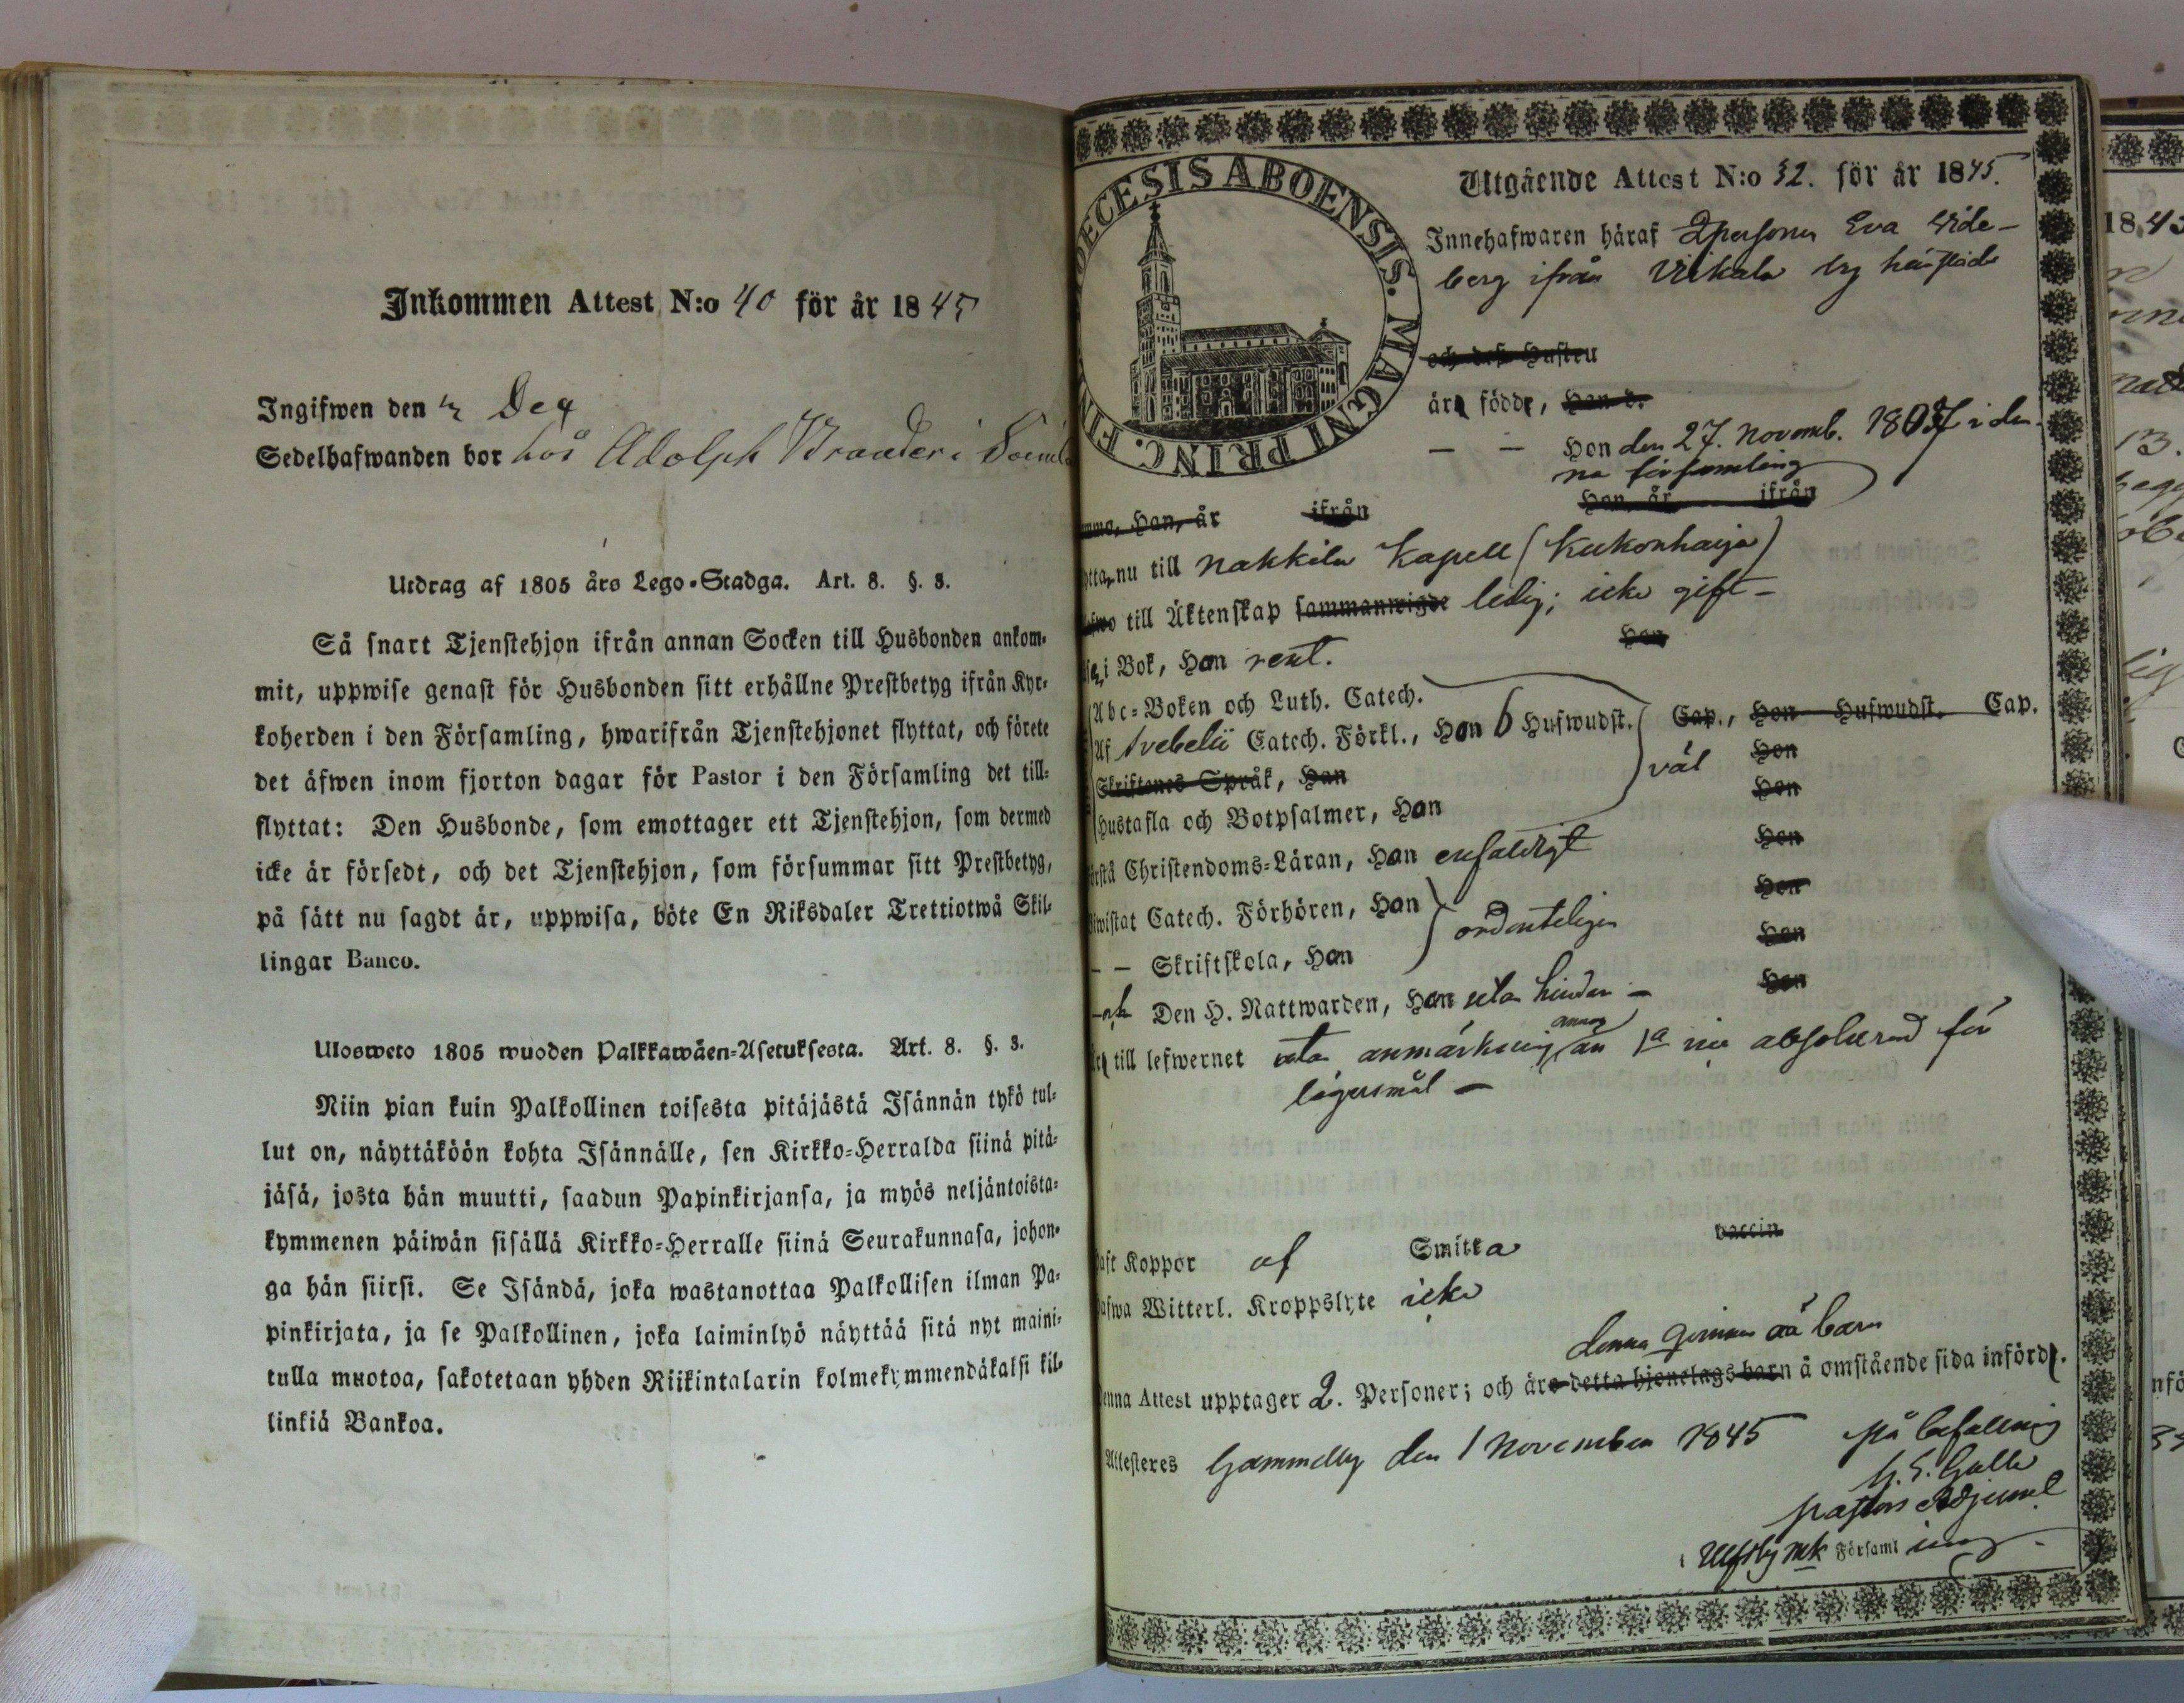 Inkommen Attest N:o 40 för år 1845
Ingifwen den
Sedelhafwanden bor hos Adolph Brander i
Utdrag af 1805 års Lego-Stadga. Art. 8. §. 3.
Så snart Tjenstehjon ifrån annan Socken till Husbonden ankom-
mit, uppwise genast för Husbonden sitt erhållne Prestbetyg ifrån Kyr-
koherden i den Församling, hwarifrån Tjenstehjonet flyttat, och förete
det äfwen inom fjorton dagar för Pastor i den Församling det till-
flyttat: Den Husbonde, som emottager ett Tjenstehjon, som dermed
icke är försedt, och det Tjenstehjon, som försummar sitt Prestbetyg,
på sätt nu sagdt är, uppwisa, böte En Riksdaler Trettiotwå Skil-
lingar Banco.
Ulosweto 1805 wuoden Palkkawäen-Asetuksesta. Art. 8. §. 3.
Niin pian kuin Palkollinen toisesta pitäjästä Isännän tykö tul-
lut on, näyttäköön kohta Isännälle, sen Kirkko-Herralda siinä pitä-
jäsä, josta hän muutti, saadun Papinkirjansa, ja myös neljäntoista-
kymmenen päiwän sisällä Kirkko-Herralle siinä Seurakunnasa, johon-
ga hän siirsi. Se Isändä, joka wastanottaa Palkollisen ilman Pa-
pinkirjata, ja se Palkollinen, joka laiminlyö näyttää sitä nyt maini-
tulla muotoa, sakotetaan yhden Riikintalarin kolmekymmendäkaksi kil-
linkiä Bankoa.
DECESIS ABOENSIS. MAGNI PRINC. FIN
Utgående Attest N:o 32. för år 1845.
Innehafwaren häraf Eva Wide-
berg ifrån Viikala by
och dess Hustru
är födde, Han d.
— — Hon den 27. Novemb. 1807 i den-
na församling
Han, år ifrån Hon, år ifrån
nu till Nakkila Kapell (Kukonharja)
till Äktenskap sammanwigde ledig; icke gift —
i Bok, Hon rent. Hon
Abc-Boken och Luth. Catech.
Af Svebelii Catech. Förkl., Hon 6 Hufwudst. Cap., Hon Hufwudst. Cap.
Skriftenes Språk, Han väl Hon
Hustafla och Botpsalmer, Hon Hon
Christendoms-Läran, Hon enfaldigt Hon
Catech. Förhören, Hon Hon
— — Skriftskola, Hon ordenteligen Hon
Den H. Nattwarden, Hon utan hinder — Hon
till lefwernet utan anmärkning annan än 1a absolverad för
lägersmål —
Koppor af Smitta vaccin
Witterl. Kroppslyte icke
denna qvinnas barn
Attest upptager 2. Personer; och äro detta hjonelags barn å omstående sida införde.
Attesteres Gammelby den 1 November 1845 på befallning
Pastors Adjunct
i Ulfsby Församling